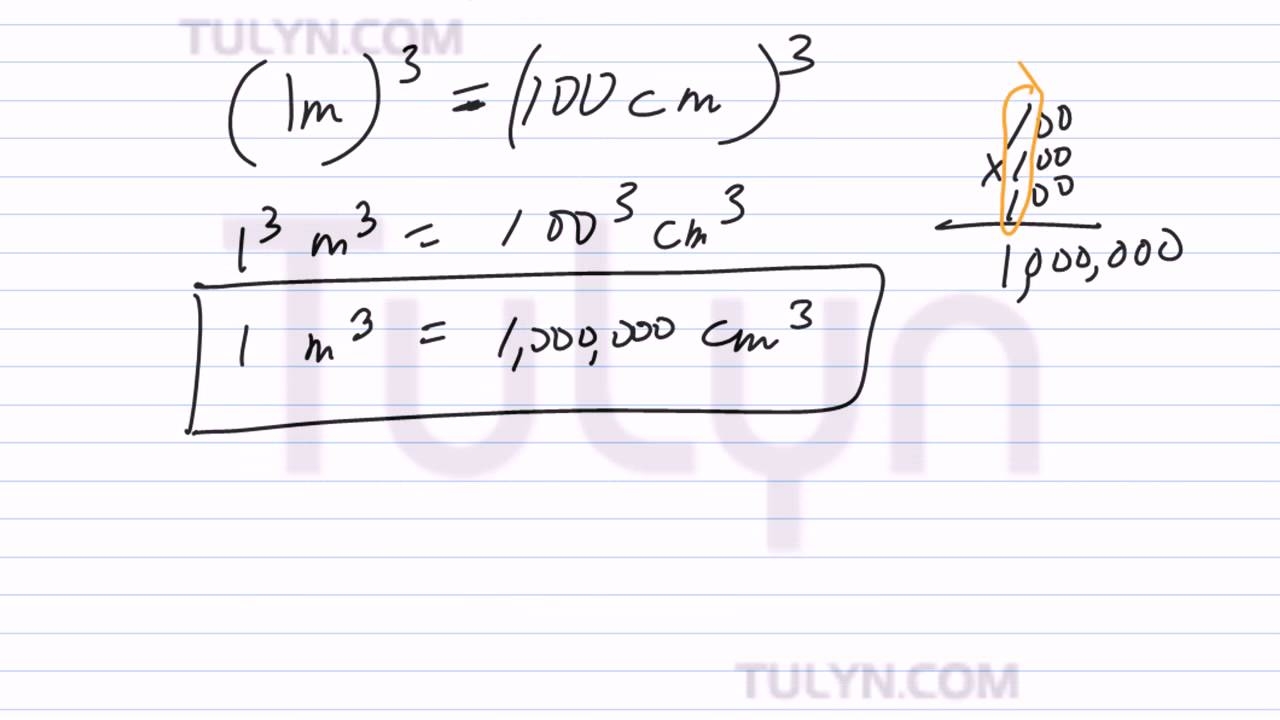 TULYN.COM
(1m)³ = (100 cm)³
1³ m³ = 100³ cm³
1 m³ = 1,000,000 cm³
100
x 100
100
1,000,000
Tulyn
TULYN.COM